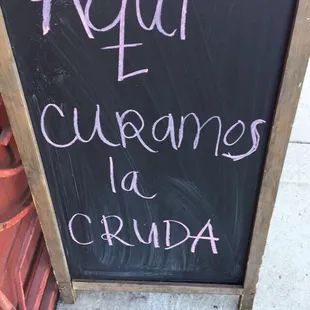 Aquí
CURamos
la
CRUDA